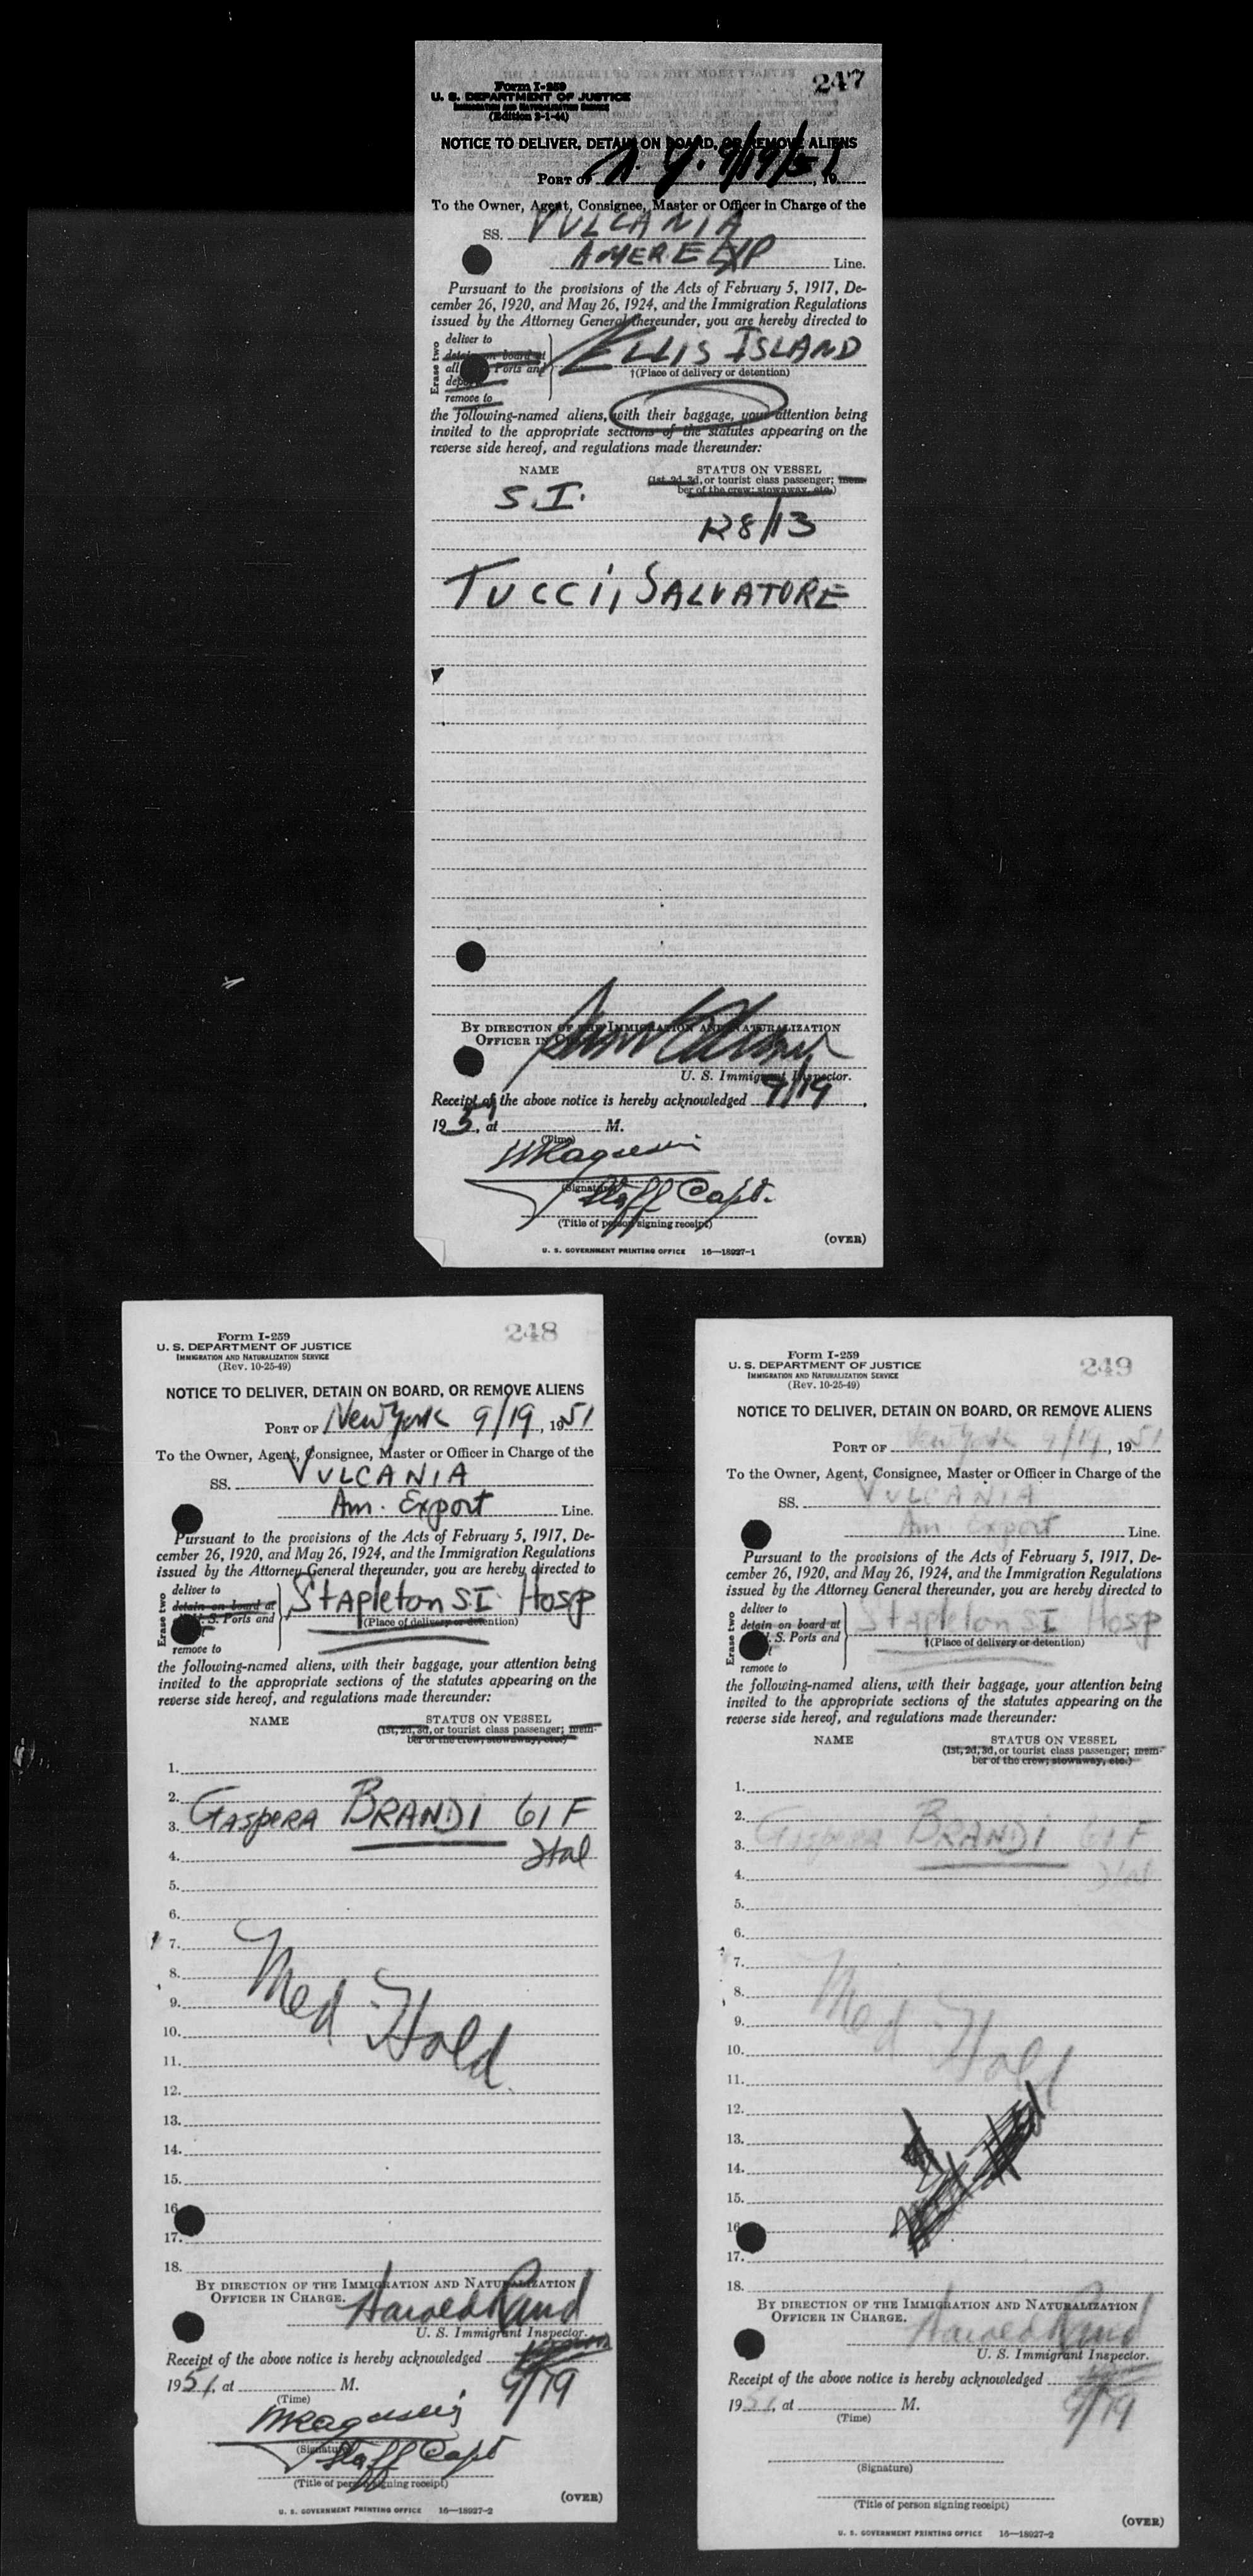 247
Form I-259
U. S. DEPARTMENT OF JUSTICE
IMMIGRATION AND NATURALIZATION SERVICE
(Edition 2-1-44)
NOTICE TO DELIVER, DETAIN ON BOARD, OR REMOVE ALIENS
PORT OF N. Y. 9/19/51, 19
To the Owner, Agent, Consignee, Master or Officer in Charge of the
SS. VULCANIA
AMER. EXP Line.
Pursuant to the provisions of the Acts of February 5, 1917, De-
cember 26, 1920, and May 26, 1924, and the Immigration Regulations
issued by the Attorney General thereunder, you are hereby directed to
Erase two
deliver to
detain on board at
all Ports and
remove to
ELLIS ISLAND
†(Place of delivery or detention)
the following-named aliens, with their baggage, your attention being
invited to the appropriate sections of the statutes appearing on the
reverse side hereof, and regulations made thereunder:
NAME STATUS ON VESSEL
(1st, 2d, 3d, or tourist class passenger; mem-
ber of the crew; stowaway, etc.)
S.I.
R8/13
TUCCI, SALVATORE
BY DIRECTION OF THE IMMIGRATION AND NATURALIZATION
OFFICER IN CHARGE.
U. S. Immigrant Inspector.
Receipt of the above notice is hereby acknowledged 9/19,
1951, at M.
(Time)
(Signature)
Staff Capt.
(Title of person signing receipt)
(OVER)
U. S. GOVERNMENT PRINTING OFFICE 16—18927-1
248
Form I-259
U. S. DEPARTMENT OF JUSTICE
IMMIGRATION AND NATURALIZATION SERVICE
(Rev. 10-25-49)
NOTICE TO DELIVER, DETAIN ON BOARD, OR REMOVE ALIENS
PORT OF New York 9/19, 1951
To the Owner, Agent, Consignee, Master or Officer in Charge of the
SS. VULCANIA
Am. Export Line.
Pursuant to the provisions of the Acts of February 5, 1917, De-
cember 26, 1920, and May 26, 1924, and the Immigration Regulations
issued by the Attorney General thereunder, you are hereby directed to
Erase two
deliver to
detain on board at
U. S. Ports and
remove to
Stapleton S I Hosp
†(Place of delivery or detention)
the following-named aliens, with their baggage, your attention being
invited to the appropriate sections of the statutes appearing on the
reverse side hereof, and regulations made thereunder:
NAME STATUS ON VESSEL
(1st, 2d, 3d, or tourist class passenger; mem-
ber of the crew; stowaway, etc.)
1.
2.
3. GASPERA BRANDI 61 F
4. Ital
5.
6.
7.
8. Med Hold
9.
10.
11.
12.
13.
14.
15.
16.
17.
18.
BY DIRECTION OF THE IMMIGRATION AND NATURALIZATION
OFFICER IN CHARGE.
Harold Rand
U. S. Immigrant Inspector.
Receipt of the above notice is hereby acknowledged
1951, at M. 9/19
(Time)
(Signature)
Staff Capt
(Title of person signing receipt)
(OVER)
U. S. GOVERNMENT PRINTING OFFICE 16—18927-2
249
Form I-259
U. S. DEPARTMENT OF JUSTICE
IMMIGRATION AND NATURALIZATION SERVICE
(Rev. 10-25-49)
NOTICE TO DELIVER, DETAIN ON BOARD, OR REMOVE ALIENS
PORT OF New York 9/19, 1951
To the Owner, Agent, Consignee, Master or Officer in Charge of the
SS. VULCANIA
Am. Export Line.
Pursuant to the provisions of the Acts of February 5, 1917, De-
cember 26, 1920, and May 26, 1924, and the Immigration Regulations
issued by the Attorney General thereunder, you are hereby directed to
Erase two
deliver to
detain on board at
U. S. Ports and
remove to
Stapleton S I Hosp
†(Place of delivery or detention)
the following-named aliens, with their baggage, your attention being
invited to the appropriate sections of the statutes appearing on the
reverse side hereof, and regulations made thereunder:
NAME STATUS ON VESSEL
(1st, 2d, 3d, or tourist class passenger; mem-
ber of the crew; stowaway, etc.)
1.
2.
3. GASPERA BRANDI 61 F
4. Ital
5.
6.
7.
8. Med Hold
9.
10.
11.
12.
13.
14.
15.
16.
17.
18.
BY DIRECTION OF THE IMMIGRATION AND NATURALIZATION
OFFICER IN CHARGE.
Harold Rand
U. S. Immigrant Inspector.
Receipt of the above notice is hereby acknowledged
1951, at M. 9/19
(Time)
(Signature)
(Title of person signing receipt)
(OVER)
U. S. GOVERNMENT PRINTING OFFICE 16—18927-2